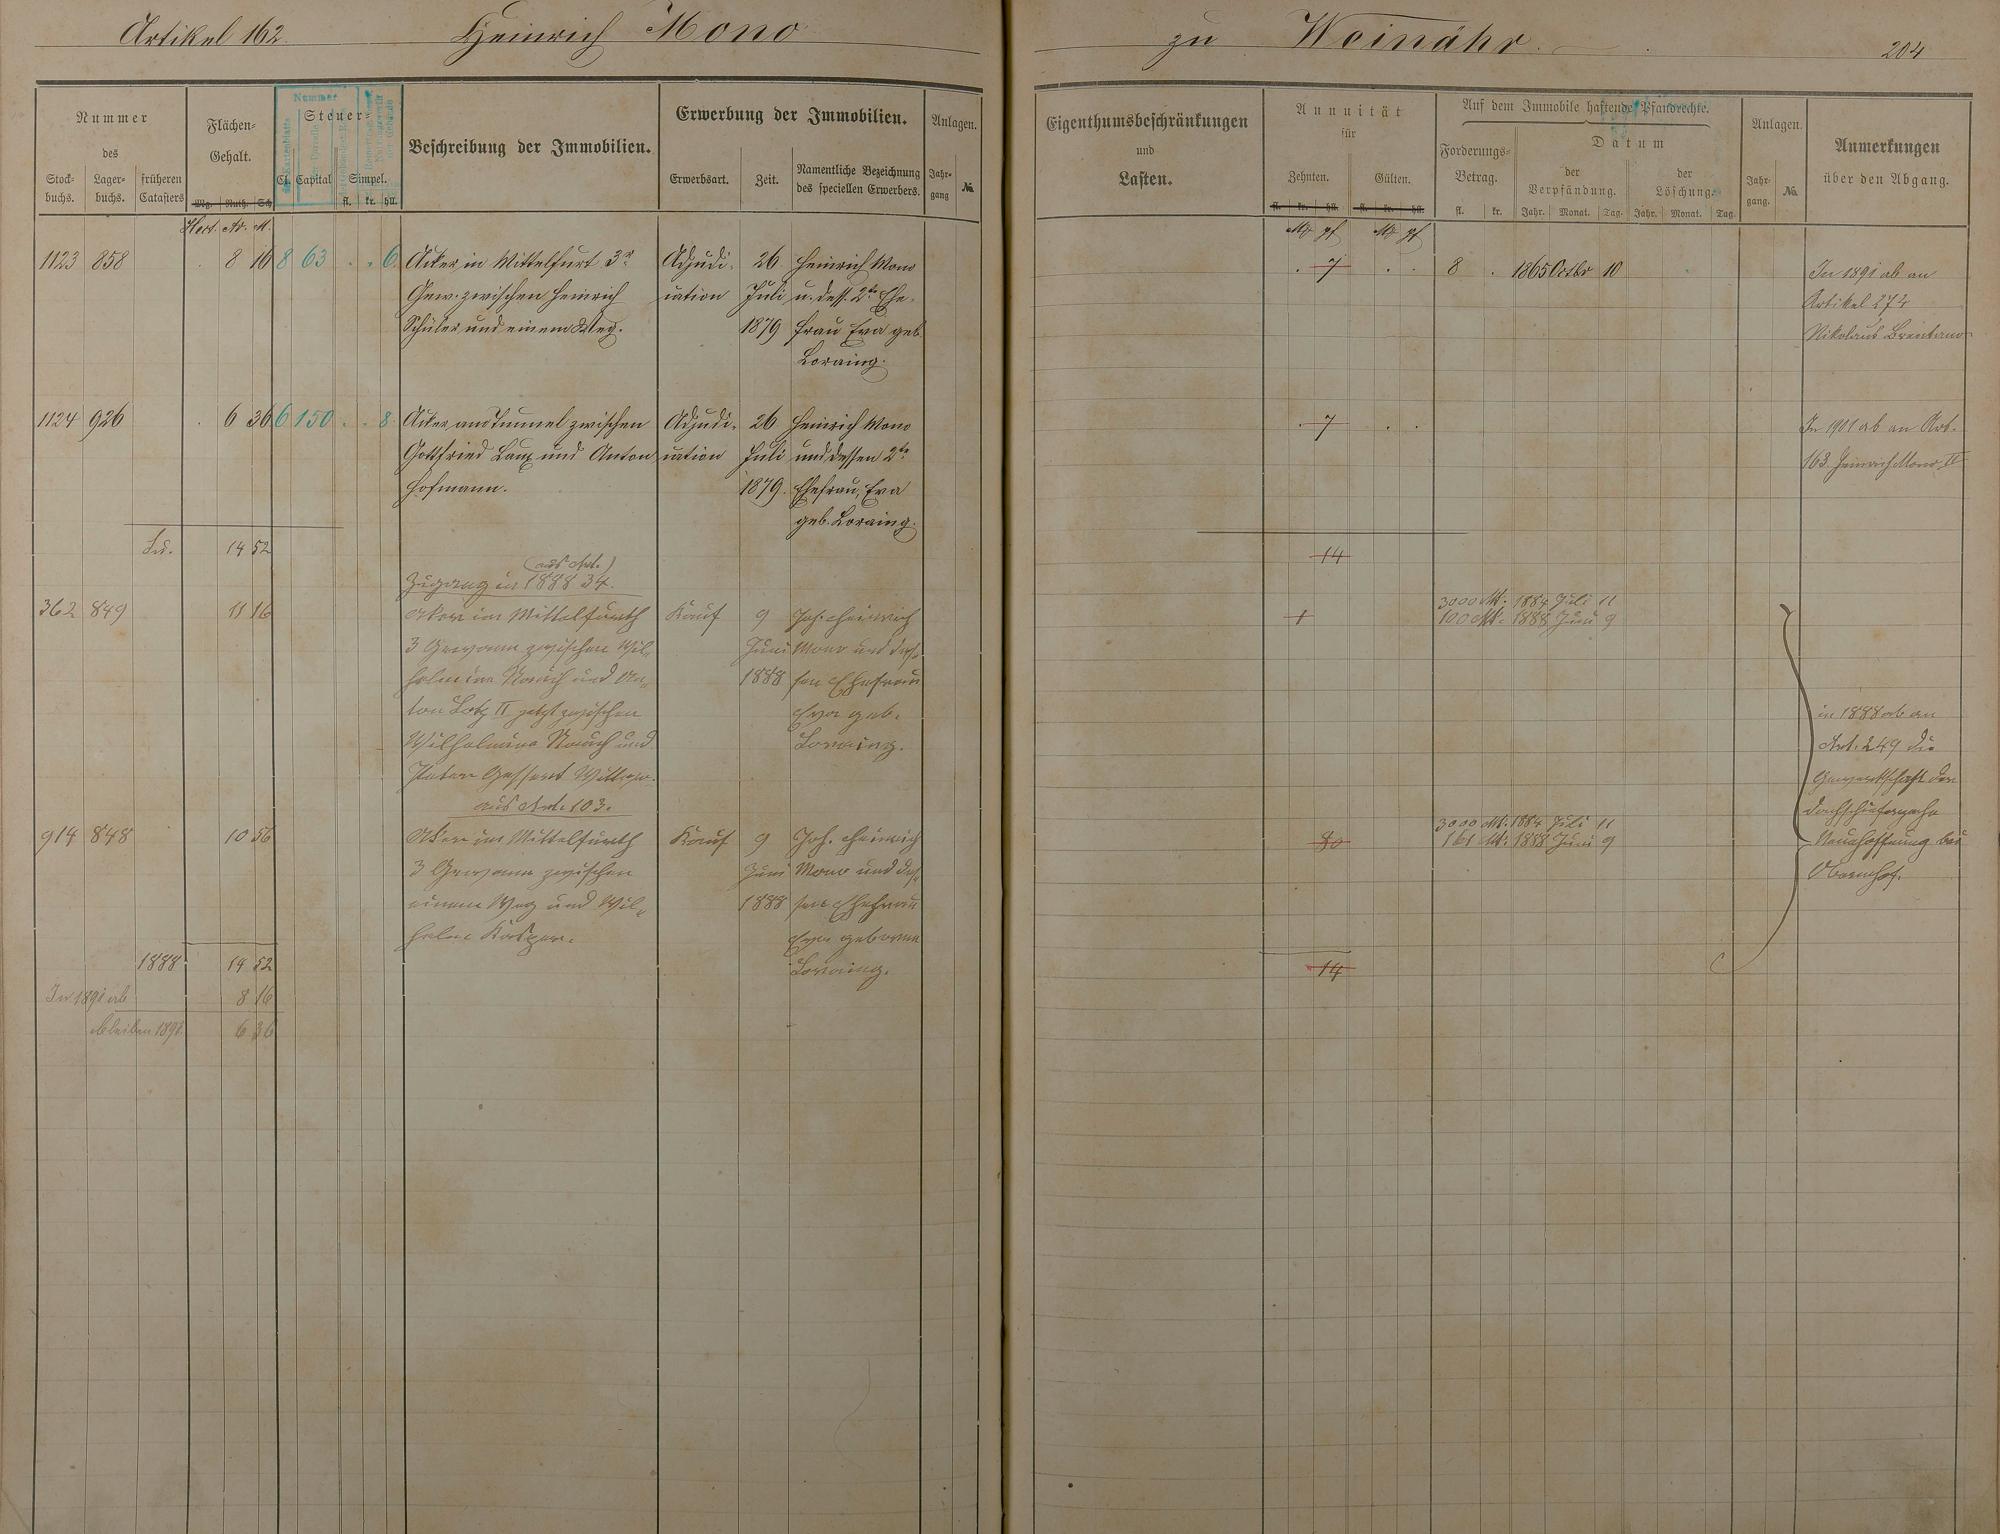 Artikel 162. Heinrich Mono
zu Weinähr. 204
Nummer
des
Stock-
buchs.
Lager-
buchs.
früheren
Catasters
Flächen-
Gehalt.
Mg. Ruth. Sch
Nummer
Steuer-
Cl. Capital Simpel.
fl. kr. hll.
Beschreibung der Immobilien.
Erwerbung der Immobilien.
Erwerbsart. Zeit.
Namentliche Bezeichnung
des speciellen Erwerbers.
Anlagen.
Jahr-
gang
No.
Eigenthumsbeschränkungen
und
Lasten.
Annuität
für
Zehnten. Gülten.
fl. kr. hll. fl. kr. hll.
Auf dem Immobile haftende Pfandrechte.
Forderungs-
Betrag.
fl. kr.
Datum
der
Verpfändung.
Jahr. Monat. Tag.
der
Löschung.
Jahr. Monat. Tag.
Anlagen.
Jahr-
gang.
No.
Anmerkungen
über den Abgang.
Hect. Ar. M.
M pf M pf
1123 858 . 8 16 8 63 . . 6.
Acker in Mittelfurt 3r
Gew. zwischen Heinrich
Schüler und einem Weg.
Adjudi-
cation
26
Juli
1879
Heinrich Mono
u. dess. 2te Ehe-
frau Eva geb.
Loraing.
. 7 . . 8 . 1865 Octbr 10
In 1891 ab an
Artikel 272
Nikolaus Brentano
1124 926 . 6 36 6 150 . . 8.
Acker am Tunnel zwischen
Gottfried Laux und Anton
Hofmann.
Adjudi-
cation
26
Juli
1879.
Heinrich Mono
und dessen 2te
Ehefrau, Eva
geb. Loraing.
. 7 . .
In 1901 ab an Art.
163. Heinrich Mono II
Su. 14 52
14
(aus Art.)
Zugang in 1888 34.
362 849 11 16
Acker im Mittelfurth
3 Gewann zwischen Wil-
helmine Rauch und An-
ton Lotz II jetzt zwischen
Wilhelmine Rauch und
Peter Gessert Wittwe.
Kauf
9
Juni
1888
Joh. Heinrich
Mono und des-
sen Ehefrau
Eva geb.
Loraing.
1
3000 Mk. 1884 Juli 11
100 Mk. 1888 Juni 9
in 1888 ab an
Art. 249 die
Gewerkschaft der
Dachschieferzeche
Neuhoffnung bei
Obernhof.
aus Art. 103.
914 848 10 56
Acker im Mittelfurth
3 Gewann zwischen
einem Weg und Wil-
helm Kasper.
Kauf
9
Juni
1888
Joh. Heinrich
Mono und des-
sen Ehefrau
Eva geborene
Loraing.
80
3000 Mk. 1884 Juli 11
161 Mk. 1888 Juni 9
1888 14 52
14
In 1891 ab 8 16
bleiben 1891. 6 36